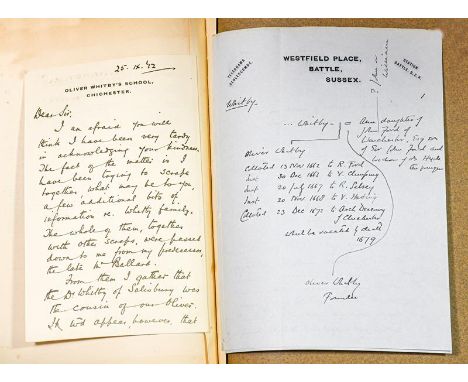 25. IX. 42
OLIVER WHITBY'S SCHOOL,
CHICHESTER.
Dear Sir,
I am afraid you will
think I have been very tardy
in acknowledging your kindness.
The fact of the matter is I
have been trying to scrape
together what may be to you
a few additional bits of
information re. Whitby family.
The whole of them, together
with other scraps, were passed
down to me from my predecessor,
the late Mr Ballard.
From them I gather that
the Dr Whitby of Salisbury was
the cousin of our Oliver.
It wd appear, however, that
TELEGRAMS
STATION
BATTLE, S.E.R.
WESTFIELD PLACE,
BATTLE,
SUSSEX.
Whitby
... Whitby = Ann daughter of
John Ford of
Oliver Whitby
Collated 13 Nov 1662 to R. Ford
Inst 30 Dec 1662 to V. Clymping
Inst 20 July 1667 to R. Selsey
Inst 20 Nov 1668 to V.
Collated 23 Dec 1672 to Arch Deaconry
of Chichester
which he vacated by death
1679
Oliver Whitby
Founder